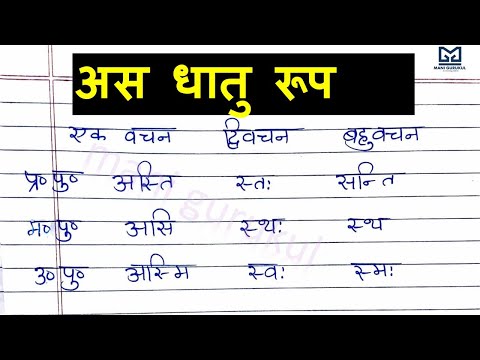 MANI GURUKUL
अस धातु रूप
एक वचन द्विवचन बहुवचन
प्र० पु० अस्ति स्तः सन्ति
म० पु० असि स्थः स्थ
उ० पु० अस्मि स्वः स्मः
mani gurukul